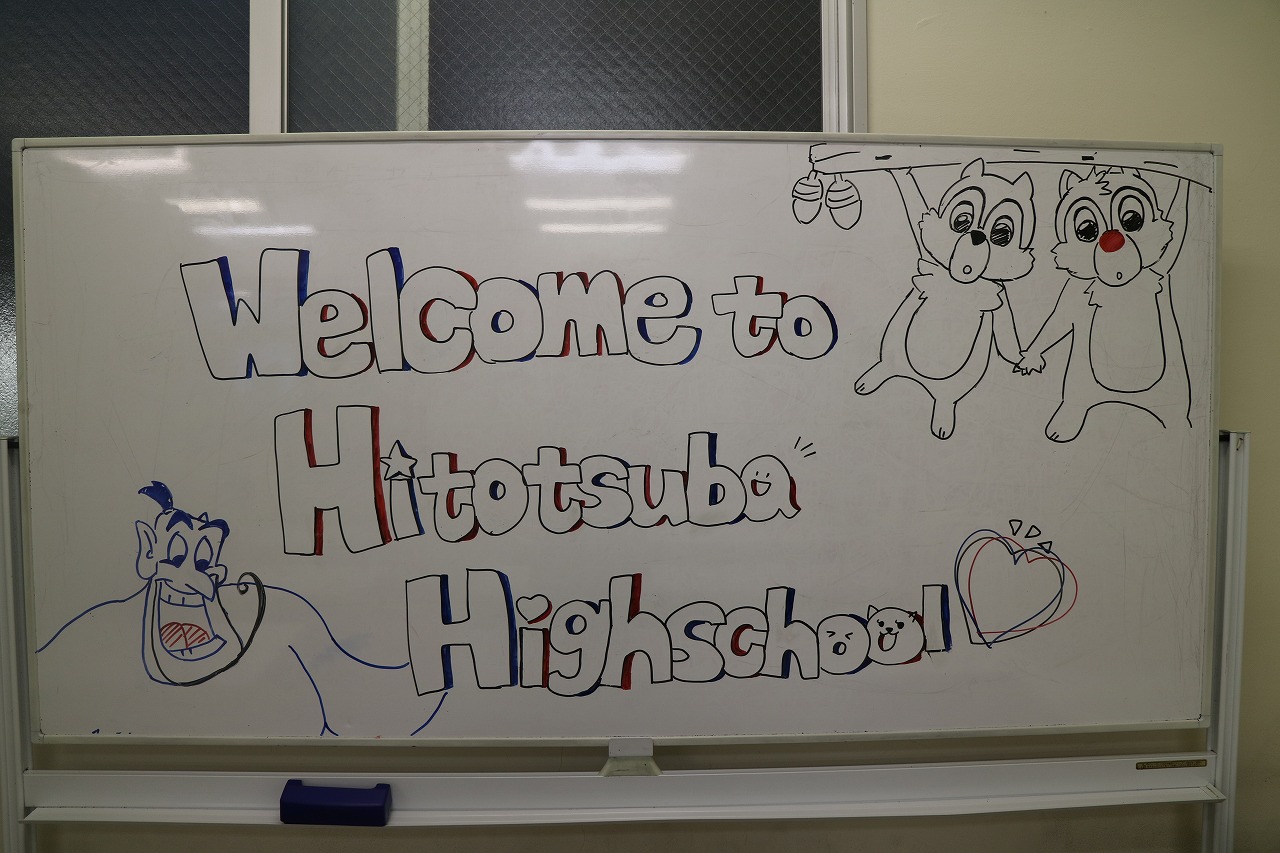 Welcome to
Hitotsuba
Highschool